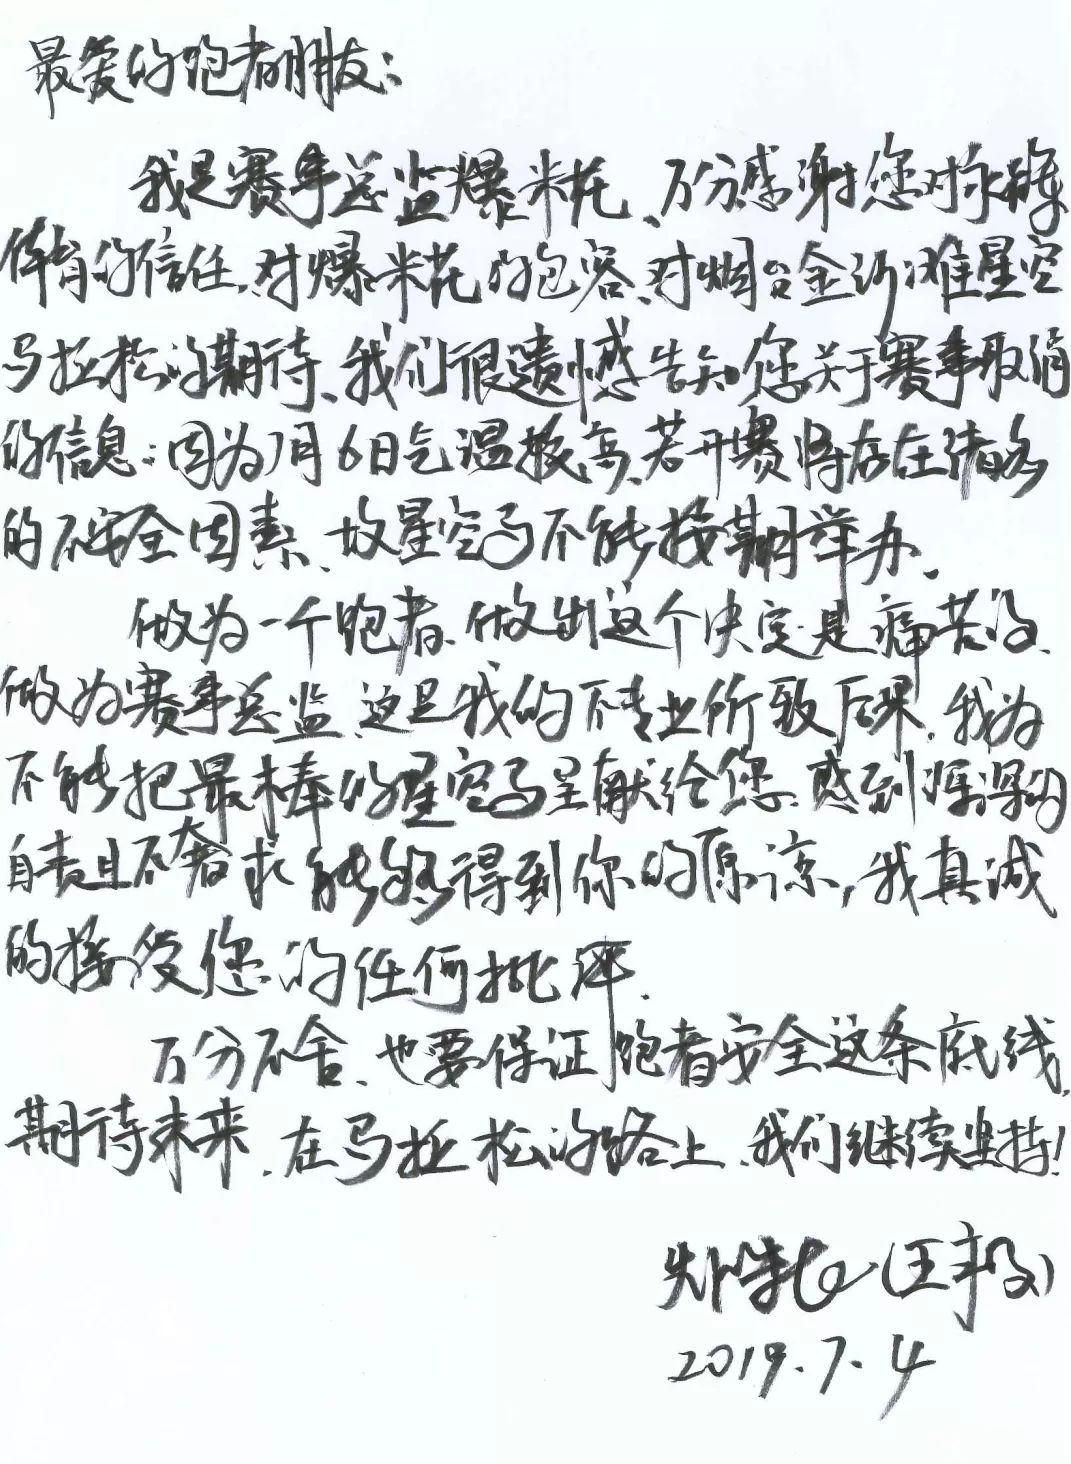 最爱的跑者朋友：
我是赛事总监爆米花、万分感谢您对永稼
体育的信任、对爆米花的包容、对烟台金沙滩星空
马拉松的期待、我们很遗憾告知您关于赛事取消
的信息：因为7月6日气温较高、若开赛将存在诸多
的不安全因素、故星空马不能按期举办、
做为一个跑者、做出这个决定是痛苦的、
做为赛事总监、这是我的不专业所致后果、我为
不能把最棒的星空马呈献给您、感到深深的
自责且不奢求能够得到你的原谅，我真诚
的接受您的任何批评、
万分不舍、也要保证跑者安全这条底线、
期待未来、在马拉松的路上、我们继续坚持！
（王
2019.7.4